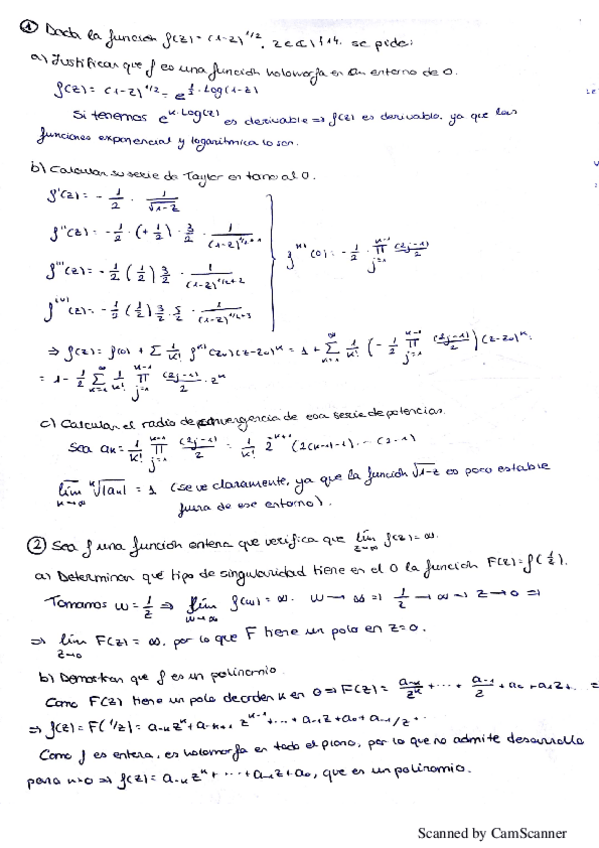 ① Dada la función f(z) = (1-z)^{1/2}, z ∈ ℂ\{1}. se pide:
a) Justificar que f es una función holomorfa en un entorno de 0.
f(z) = (1-z)^{1/2} = e^{1/2 · Log(1-z)}
Si tenemos e^{α·Log(z)} es derivable ⇒ f(z) es derivable, ya que las
funciones exponencial y logarítmica lo son.
b) Calcular su serie de Taylor en torno al 0.
f'(z) = - 1/2 · 1/√(1-z)
f''(z) = - 1/2 · (+ 1/2) · 3/2 · 1/(1-z)^{1/2+1}
f^{(k)}(0) = - 1/2 · ∏_{j=1}^{k-1} (2j-1)/2
f'''(z) = - 1/2 (1/2) 3/2 · 1/(1-z)^{1/2+2}
f^{(iv)}(z) = - 1/2 (1/2) 3/2 · 5/2 · 1/(1-z)^{1/2+3}
⇒ f(z) = f(0) + Σ 1/k! f^{(k)}(z₀)(z-z₀)^k = 1 + Σ_{k=1}^{∞} 1/k! (- 1/2 ∏_{j=1}^{k-1} (2j-1)/2) (z-z₀)^k =
= 1 - 1/2 Σ_{k=1}^{∞} 1/k! ∏_{j=1}^{k-1} (2j-1)/2 · z^k
c) Calcular el radio de convergencia de esa serie de potencias.
Sea ak = 1/k! ∏_{j=1}^{k-1} (2j-1)/2 = 1/k! 2^{-k+1} (2(k-1)-1) ... (2-1)
lim_{k→∞} ᵏ√|an| = 1 (se ve claramente, ya que la función √1-z es poco estable
fuera de ese entorno).
② Sea f una función entera que verifica que lim_{z→∞} f(z) = ∞.
a) Determinar qué tipo de singularidad tiene en el 0 la función F(z) = f(1/z).
Tomamos w = 1/z ⇒ lim_{w→∞} f(w) = ∞. w → ∞ ⇒ 1/z → ∞ ⇒ z → 0 ⇒
⇒ lim_{z→0} F(z) = ∞, por lo que F tiene un polo en z=0.
b) Demostrar que f es un polinomio.
Como F(z) tiene un polo de orden k en 0 ⇒ F(z) = a-k/z^k + ... + a-1/z + a0 + a1z + .. =
⇒ f(z) = F(1/z) = a-k z^k + a-k+1 z^{k-1} + ... + a-1 z + a0 + a-1/z + ..
Como f es entera, es holomorfa en todo el plano, por lo que no admite desarrollo
para n>0 ⇒ f(z) = a-k z^k + ... + a-1 z + a0, que es un polinomio.
Scanned by CamScanner